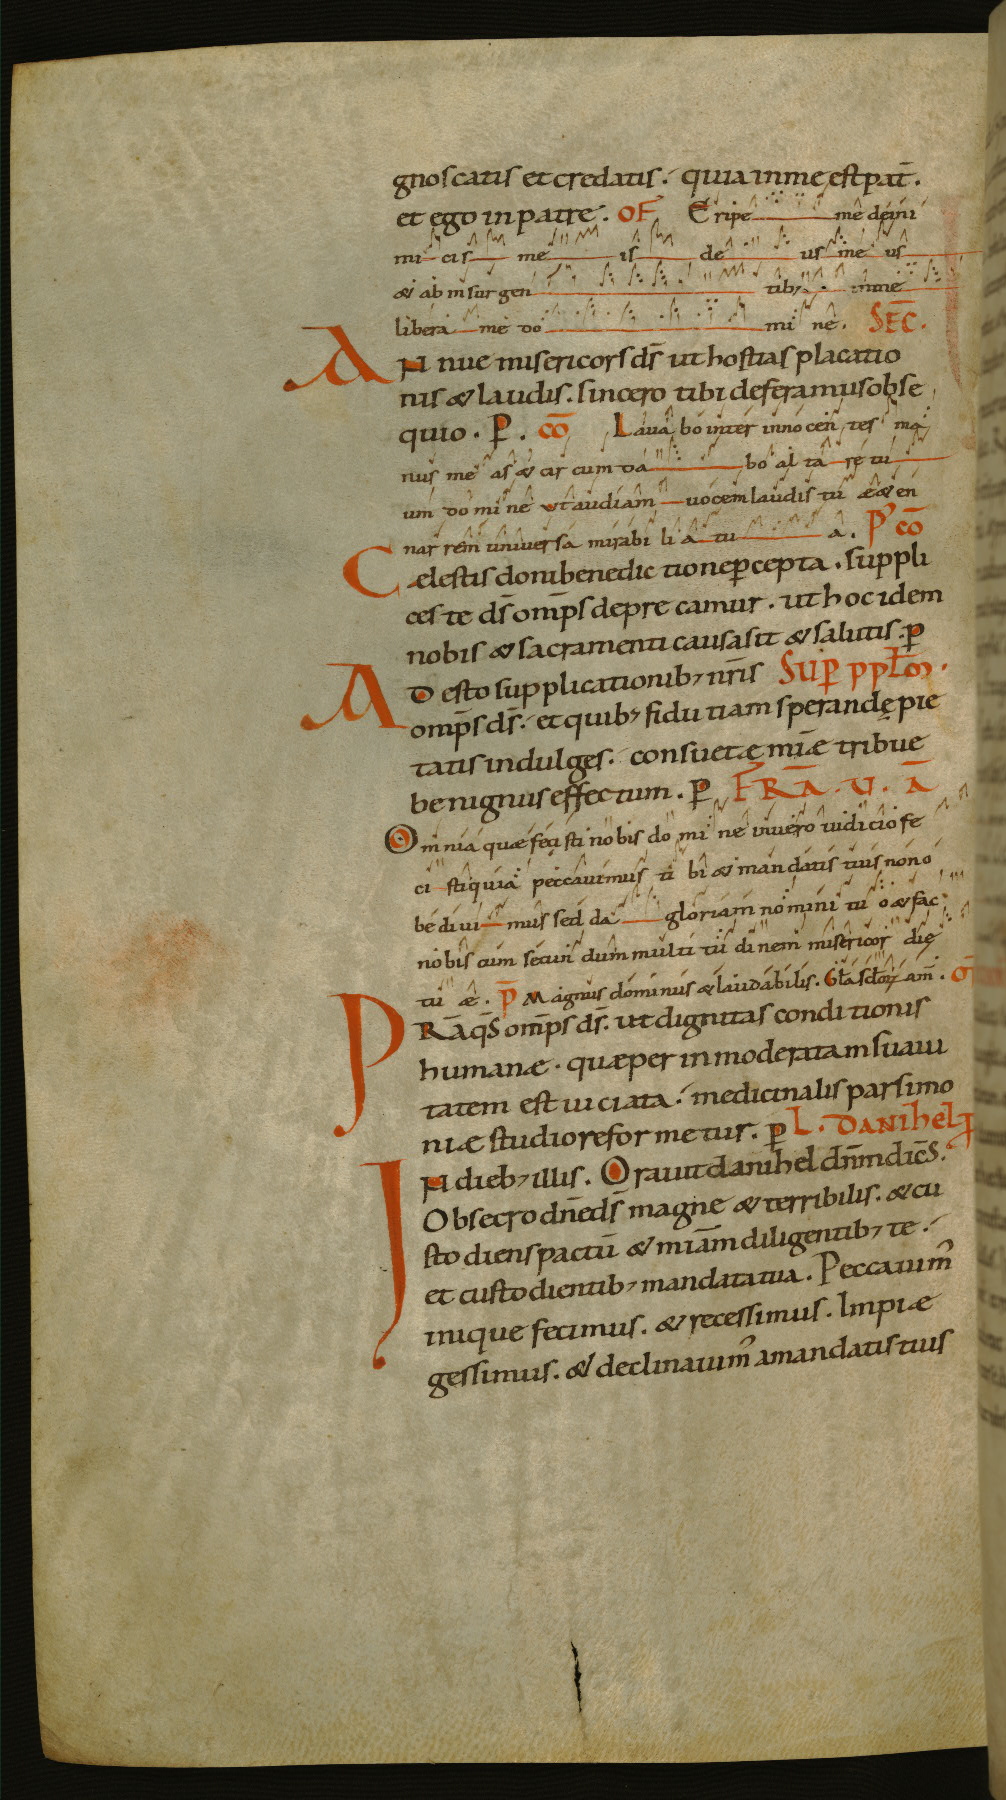 gnoscatis et credatis. quia in me est pat̄.
et ego in patre. OF Eripe me de ini
mi cis me is de us me us
& ab insurgen tib; in me
libera me do mi ne. SEC̄.
Annue misericors d̄s ut hostias placatio
nis & laudis. sincero tibi deferamus obse
quio. P. cō Lauabo inter innocentes ma
nus me as & circumda bo altare tu
um domine ut audiam uocem laudis tuæ & en
narrem uniuersa mirabilia tu a. P' cō
Cælestis doni benedictione p̄cepta. suppli
ces te d̄s om̄ps deprecamur. ut hoc idem
nobis & sacramenti causa sit & salutis. p
Adesto supplicationib; nr̄is SUP PPL̄M.
om̄ps d̄s. et quib; fiduciam sperandę pie
tatis indulges. consuetæ miæ tribue
benignus effectum. P FR̄A. V. Ā
Omnia quæ fecisti nobis domine in uero iudicio fe
cisti quia peccauimus tibi & mandatis tuis non o
bediuimus sed da gloriam nomini tuo & fac
nobiscum secundum multitudinem misericordię
tuæ. P̄ Magnus dominus & laudabilis. Gl̄a scl̄or̄ am̄.
PR̄A q̄s om̄ps d̄s. ut dignitas conditionis
humanæ. quæ per inmoderatam suaui
tatem est uiciata. medicinalis parsimo
niæ studio reformetur. p L. DANIHEL P
IN dieb; illis. Orauit danihel dn̄m dic̄s.
Obsecro dn̄e d̄s magne & terribilis. & cu
stodiens pactū & miam̄ diligentib; te.
et custodientib; mandata tua. Peccauim̄
inique fecimus. & recessimus. Impiæ
gessimus. & declinauim̄ a mandatis tuis